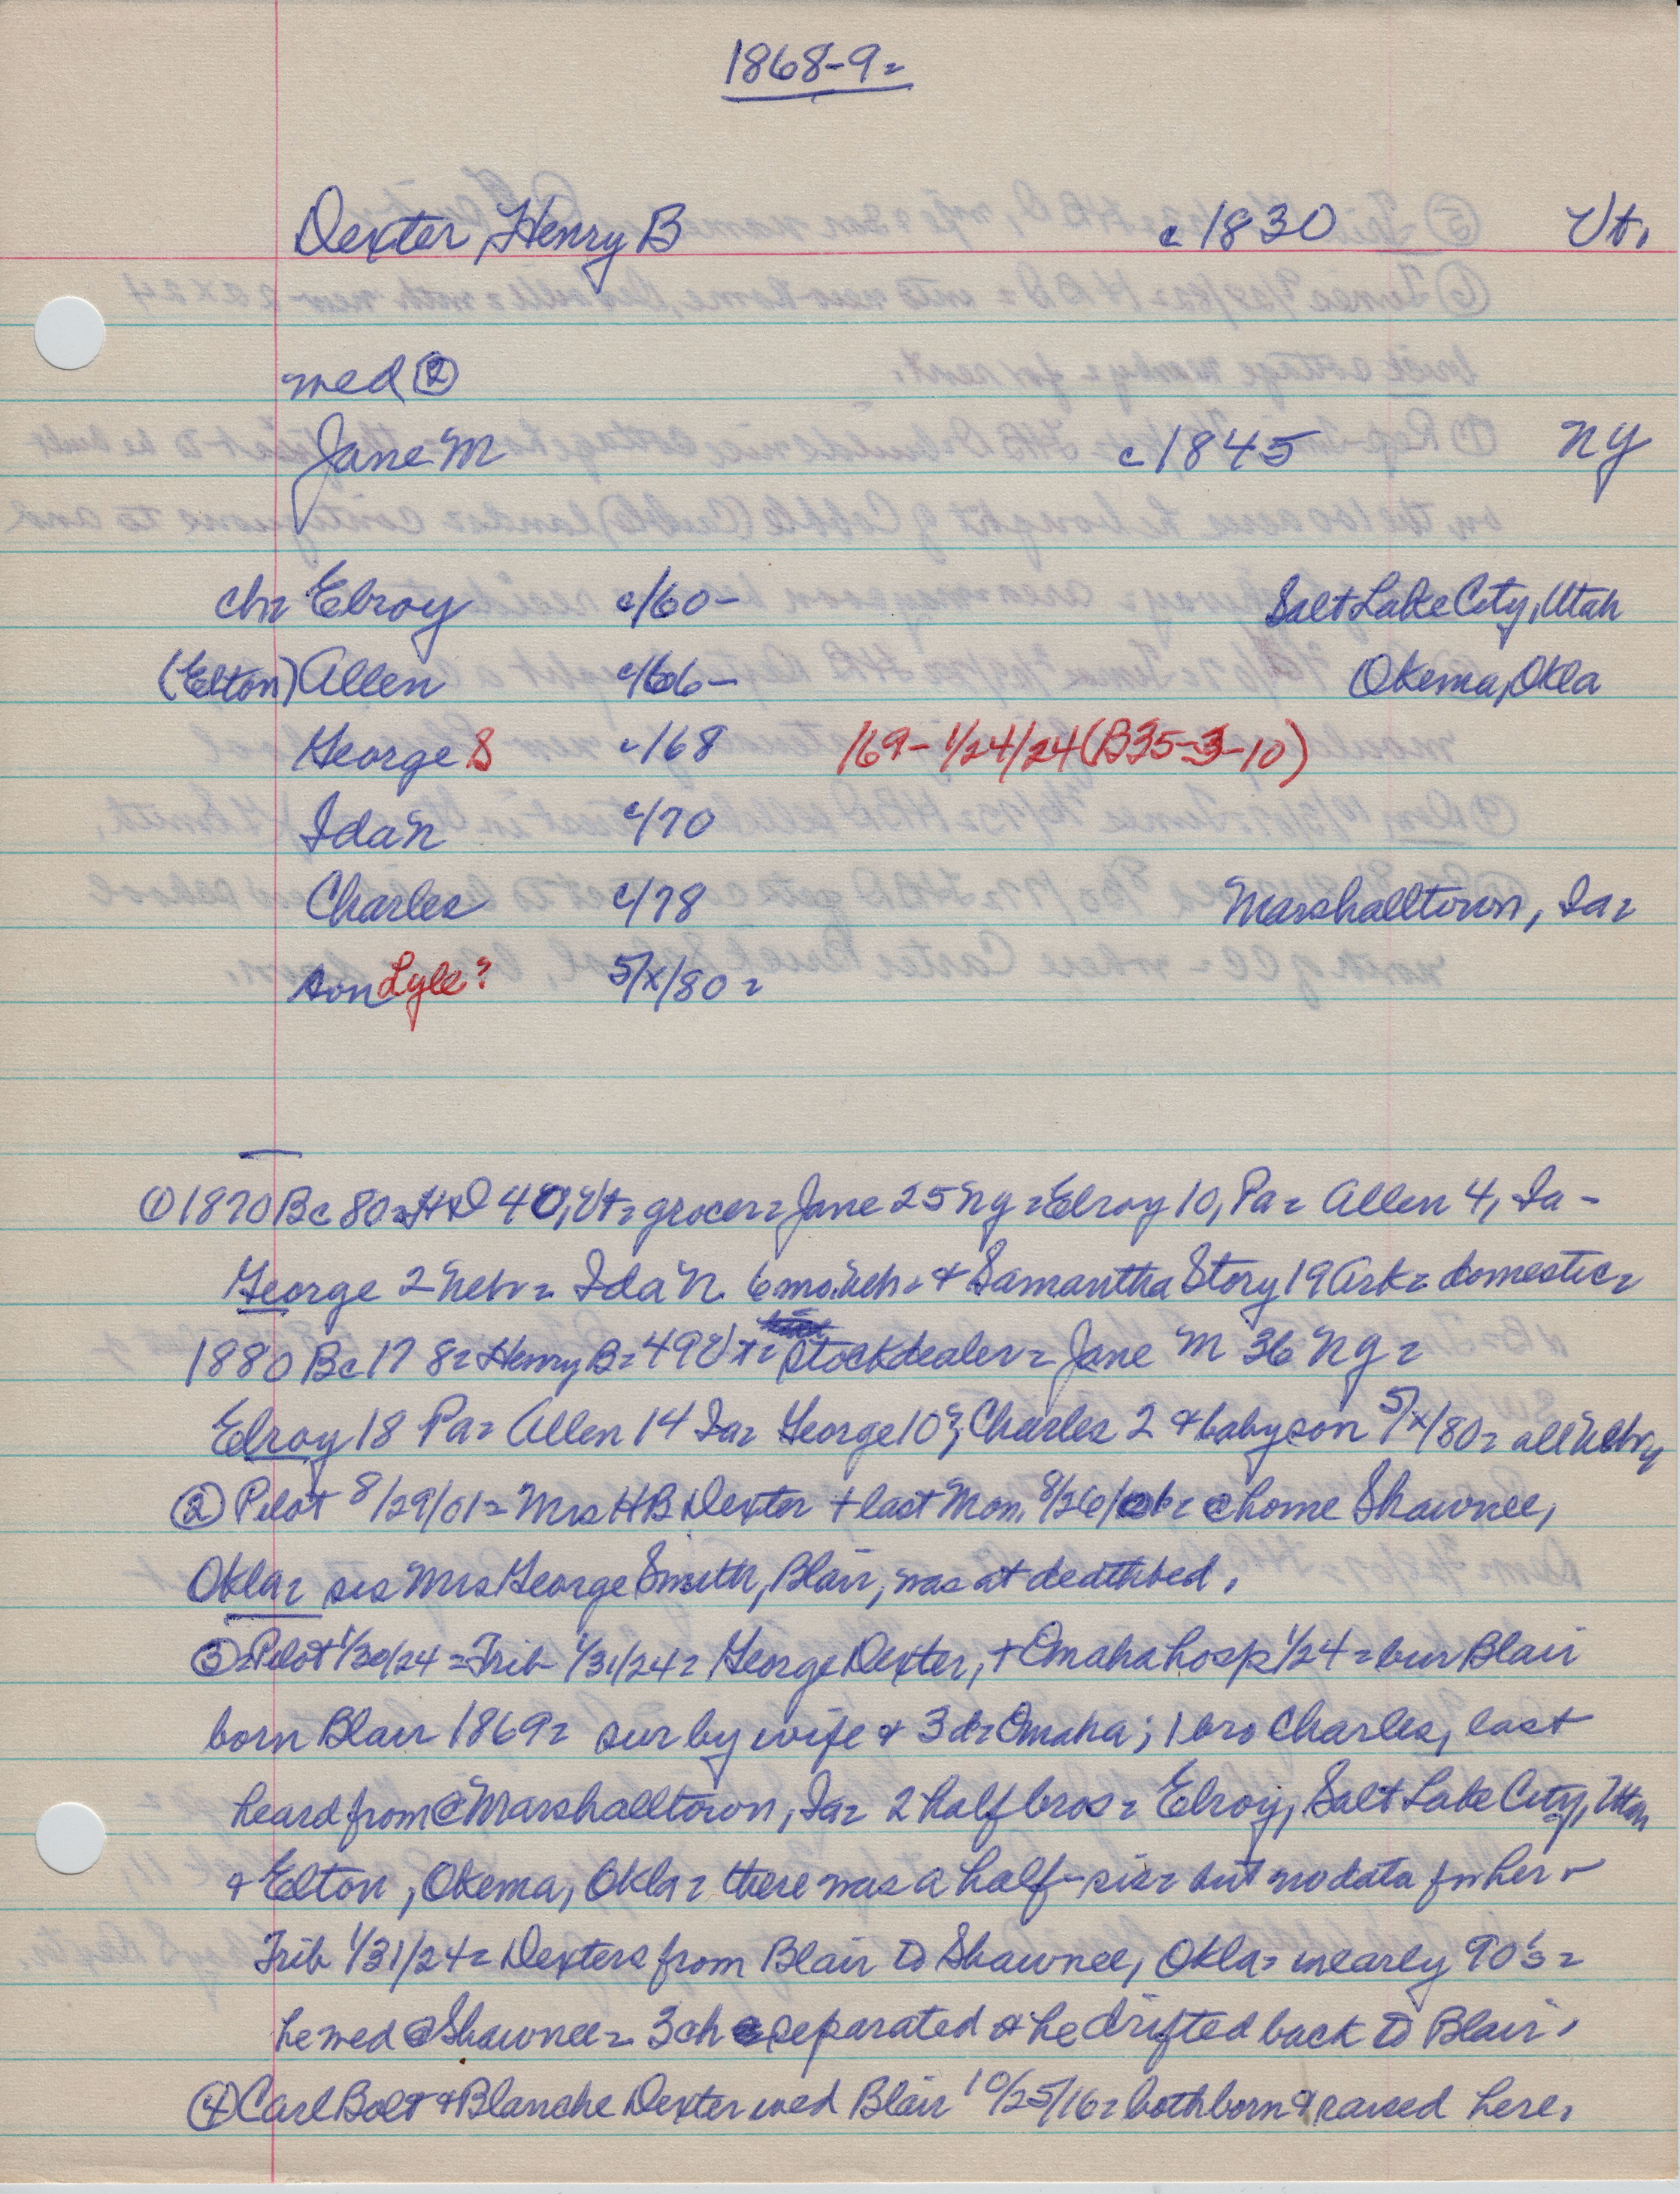 1868-9=
Dexter, Henry B c1830 Vt.
wed ②
Jane M c1845 NY
ch= Elroy c/60- Salt Lake City, Utah
(Elton) Allen c/66- Okema, Okla
George S c/68 /69- 1/24/24 (B35-3-10)
Ida N c/70
Charles c/78 Marshalltown, Ia=
son Lyle? 5/x/80=
① 1870 Bc 80= 40, Vt= grocer= Jane 25 NY= Elroy 10, Pa= Allen 4, Ia-
George 2 Nebr= Ida N. 6 mo. Neb= & Samantha Story 19 Ark= domestic=
1880 Bc 178= Henry B= 49 Vt= stockdealer= Jane M 36 NY=
Elroy 18 Pa= Allen 14 Ia= George 10; Charles 2 & baby son 5/x/80= all Nebr
② Pilot 8/29/01= Mrs HB Dexter + last Mon. 8/26/01= @ home Shawnee,
Okla= sis Mrs George Smith, Blair, was at deathbed.
③ Pilot 1/30/24= Trib 1/31/24= George Dexter, + Omaha hosp 1/24= bur Blair
born Blair 1869= sur by wife & 3 d= Omaha; 1 bro Charles, last
heard from @ Marshalltown, Ia= 2 half bros= Elroy, Salt Lake City, Utah
& Elton, Okema, Okla= there was a half-sis= but no data for her-
Trib 1/31/24= Dexters from Blair to Shawnee, Okla= in early 90's=
he wed @ Shawnee= 3 ch separated & he drifted back to Blair.
④ Carl Bolt & Blanche Dexter wed Blair 10/25/16= both born & raised here.